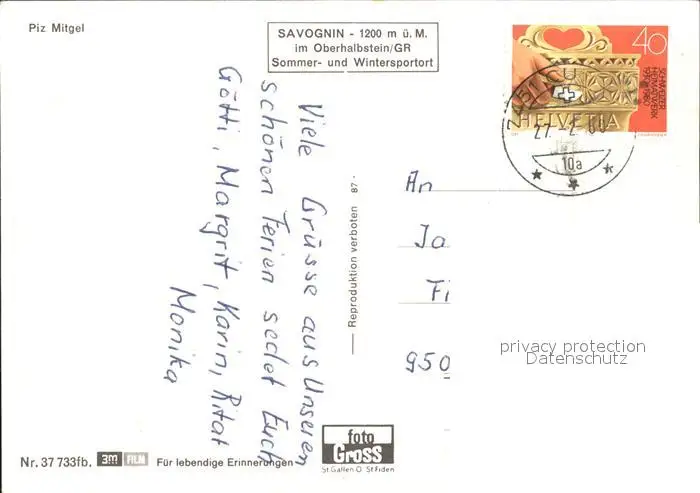 Piz Mitgel
SAVOGNIN - 1200 m ü. M.
im Oberhalbstein/GR
Sommer- und Wintersportort
40
SCHWEIZER
HEIMATWERK
1930-1980
HELVETIA
10a
Viele Grüsse aus Unseren
schönen Ferien sedet Euch
Götti, Margrit, Karin, Ritat
Monika
Reproduktion verboten 87·
An
Ja
Fi
950
privacy protection
Datenschutz
Nr. 37 733fb. 3m FILM Für lebendige Erinnerungen
foto
Gross
St.Gallen O St.Fiden